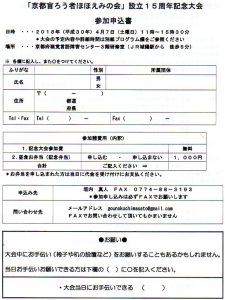 「京都盲ろう者ほほえみの会」設立15周年記念大会
参加申込書
日時 ・・・ 2018年（平成30年）4月7日（土曜日）11時〜15時30分
＊大会の予定内容や詳細時間は別紙プログラム欄をご参照ください
場所 ・・・ 京都府聴覚言語障害センター3階研修室（JR城陽駅から 徒歩5分）
※ 各欄に記入し、また○をつけてください。
ふりがな 性別 所属団体
氏名 男・女
〒
住所 都道府県
Tel・Fax Tel（ ） － Fax（ ） －
参加諸費用（内訳）
1．記念大会参加費 無料
2．昼食お弁当（記念弁当） 申し込む ・ 申し込まない 1，000円
合計 ご記入ください →
＊お弁当を申し込まれた方は当日に代金を受け付けにお支払ください。
申込み先 垣内 真人 FAX 0774-88-3193
＊参加申し込みは必ずFAXでお願いします
問い合わせ先 メールアドレス
FAXでお問い合わせして頂いてもかまいません
●お願い●
大会中にお手伝い（椅子や机の設置など）をお願いすることもあるかもしれません。
当日お手伝いお願いできる方は下欄の（ ）に○を記入ください。
・大会当日にお手伝いできる （ ）